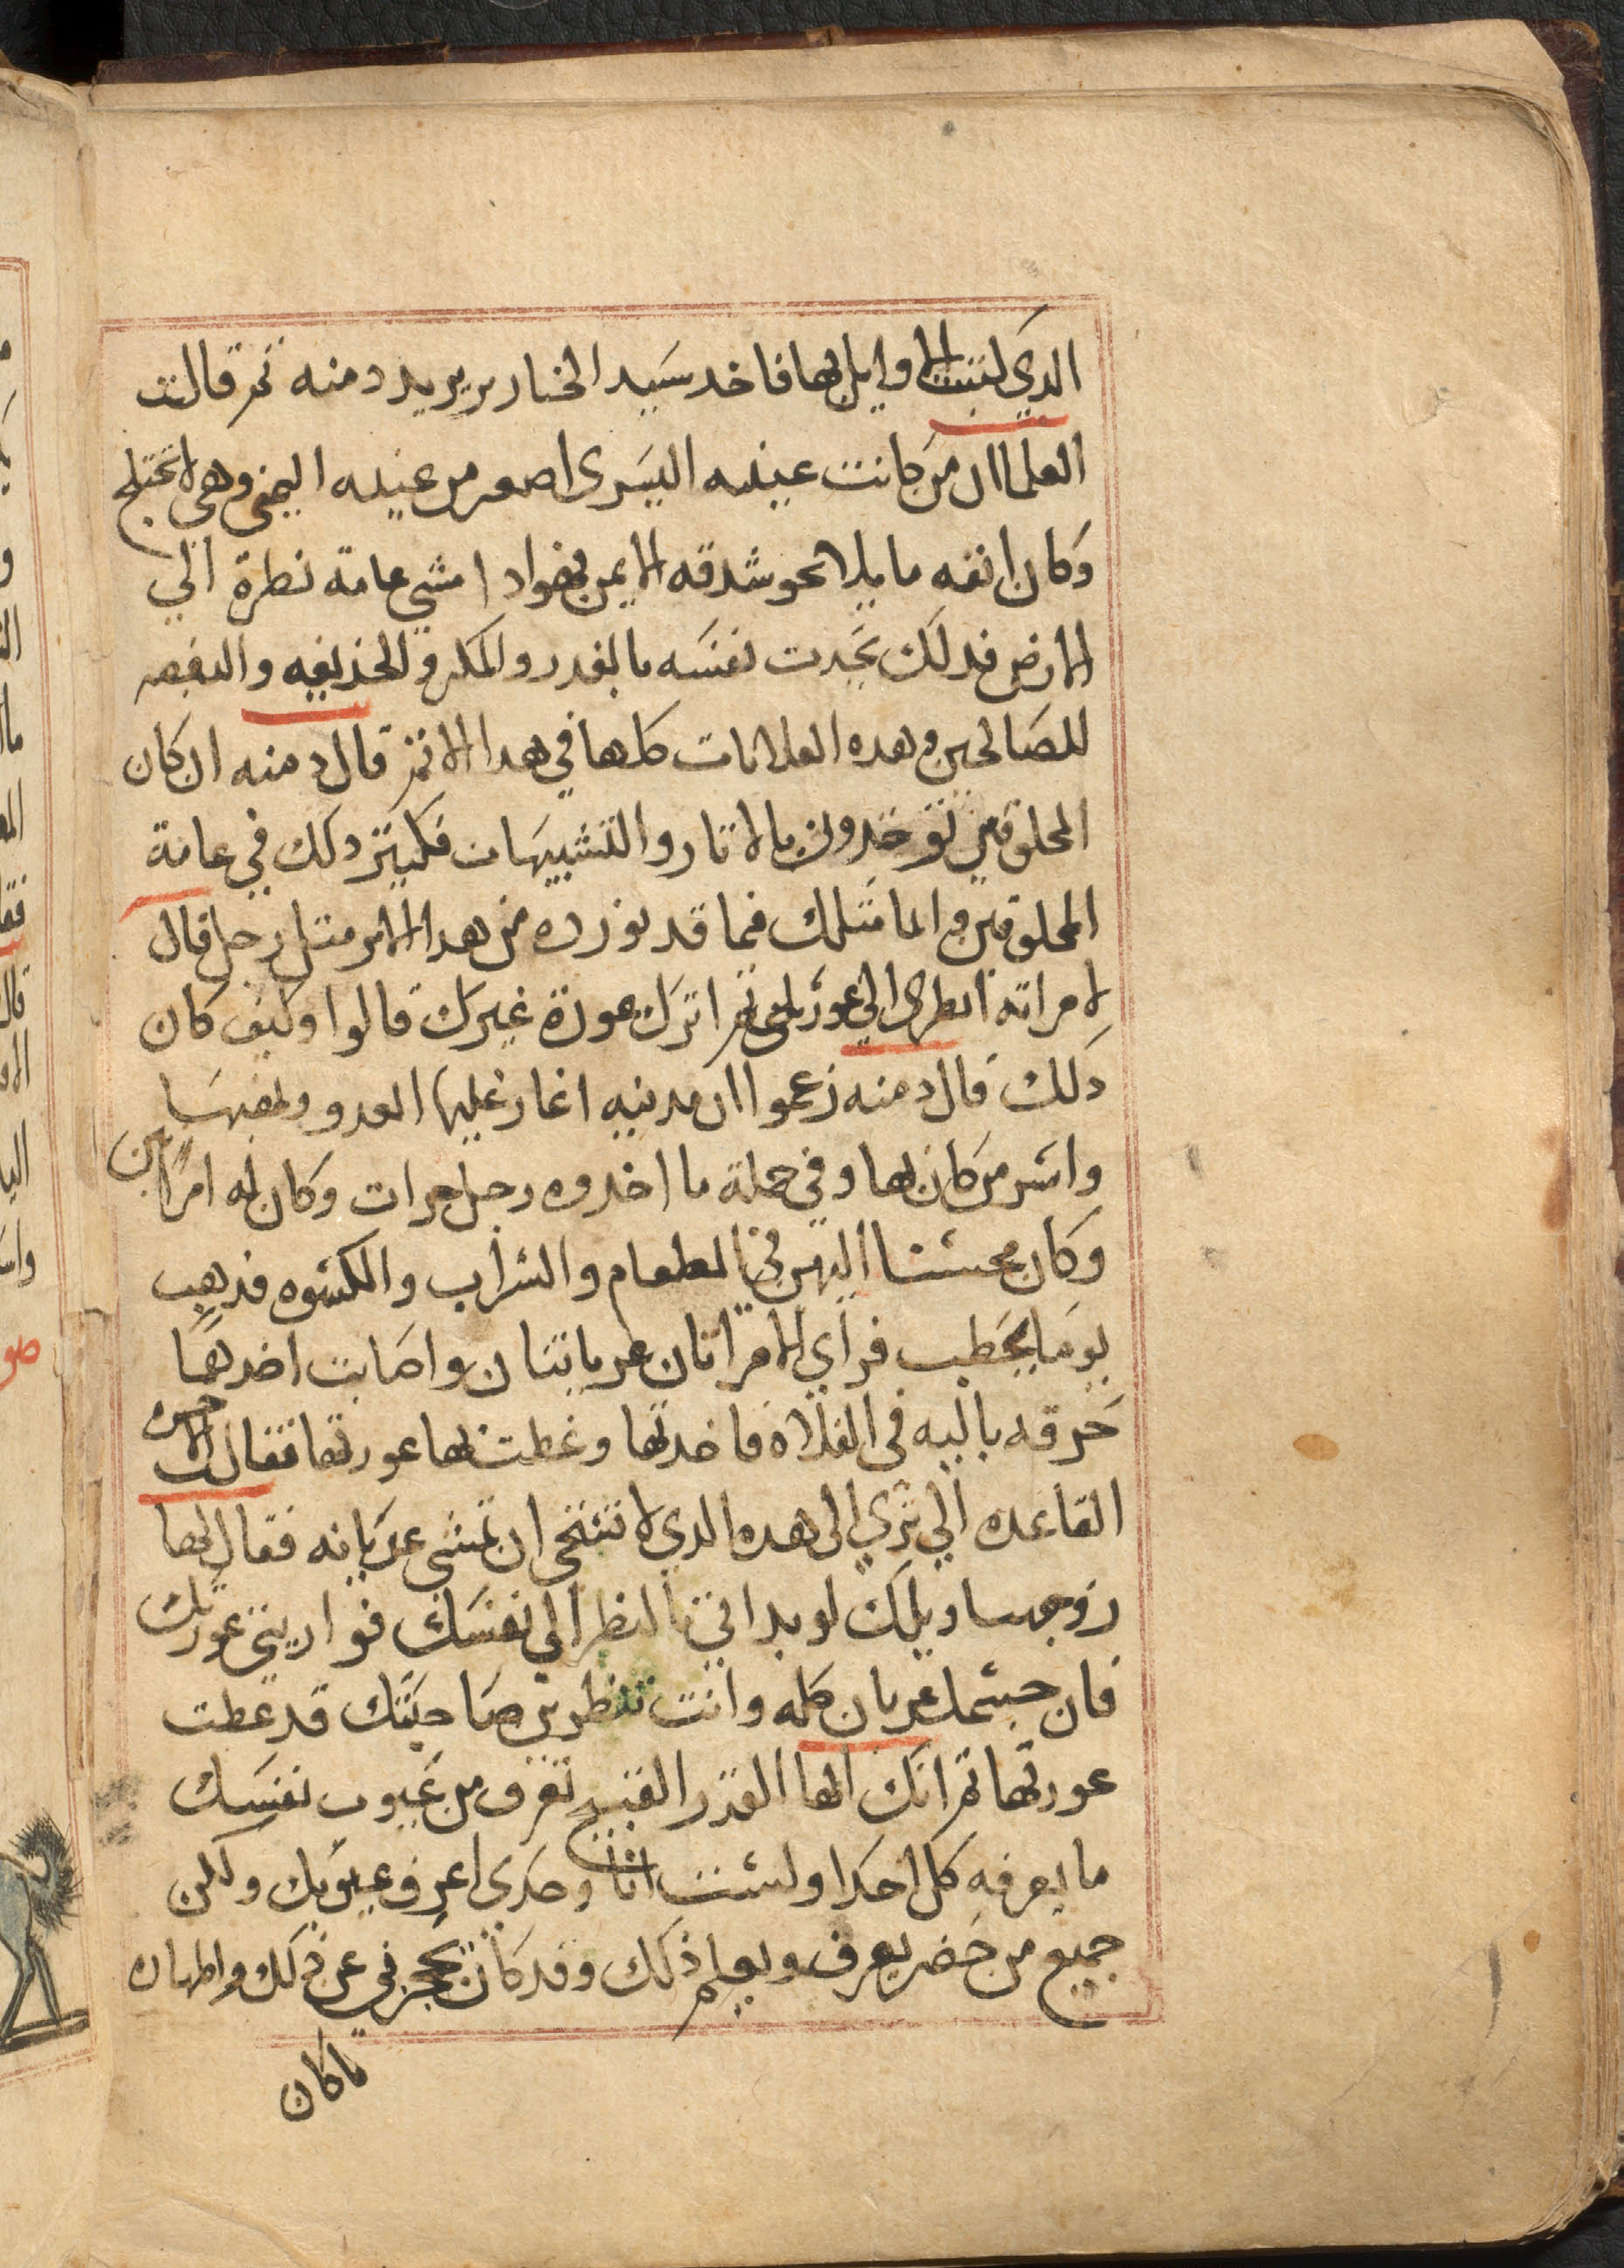 الدي كتبت الاوايل بها فاخد سيد الخنازير يريد دمنه تم قالت
العلما ان من كانت عينيه اليسرى اصعر من عينه اليمنى وهي لا تختلج
وكان انفه مايلا نحو شدقه الايمن فهوادا مشى عامة نطرة الي
الارض فدلك تجدت نفسه بالغدر والمكر والخذيعه والبغضه
للصالحين وهده العلامات كلها في هدا الاتم قال دمنه ان كان
المخلوقين توخدون بالاتار والتشبيهات فكيتر دلك في عامة
المخلوقين وانما متلك فيما قد توزده من هدا الامر متل رجل قال
لامراته انطرى الي عورتك تم اترك عورة غيرك قالوا وكيف كان
دلك قال دمنه زعموا ان مدينه اغار عليها العدو ونهبها
واشر من كان بها وفي جملة ما اخدوه رجل حرات وكان له امراتين
وكان محسنا اليهن في الطعام والشراب والكسوه فدهب
يوما يحطب فراي الامراتان عرياتنان واصابت احدهما
خرقه باليه في الفلاه فاخدتها وغطت بها عورتها فقالت الاخره
القاعده الي تري الى هده الدي لا تستحى ان تمشى عريانه فقال لها
زوجها ويلك لو بداتي بالنظر الي نفسك فواريتي عورتك
فان جسمك عريان كله وانت تنظرين صاحبتك قد غطت
عورتها تم انك ايها القدر القبيح تعرف من عيوب نفسك
ما يعرفه كل احدا ولست انا وحدى اعرف عيوبك ولكن
جميع من حضر يعرف ويعلم ذلك وقد كان يحجزني عن دلك واظهاره
ما كان